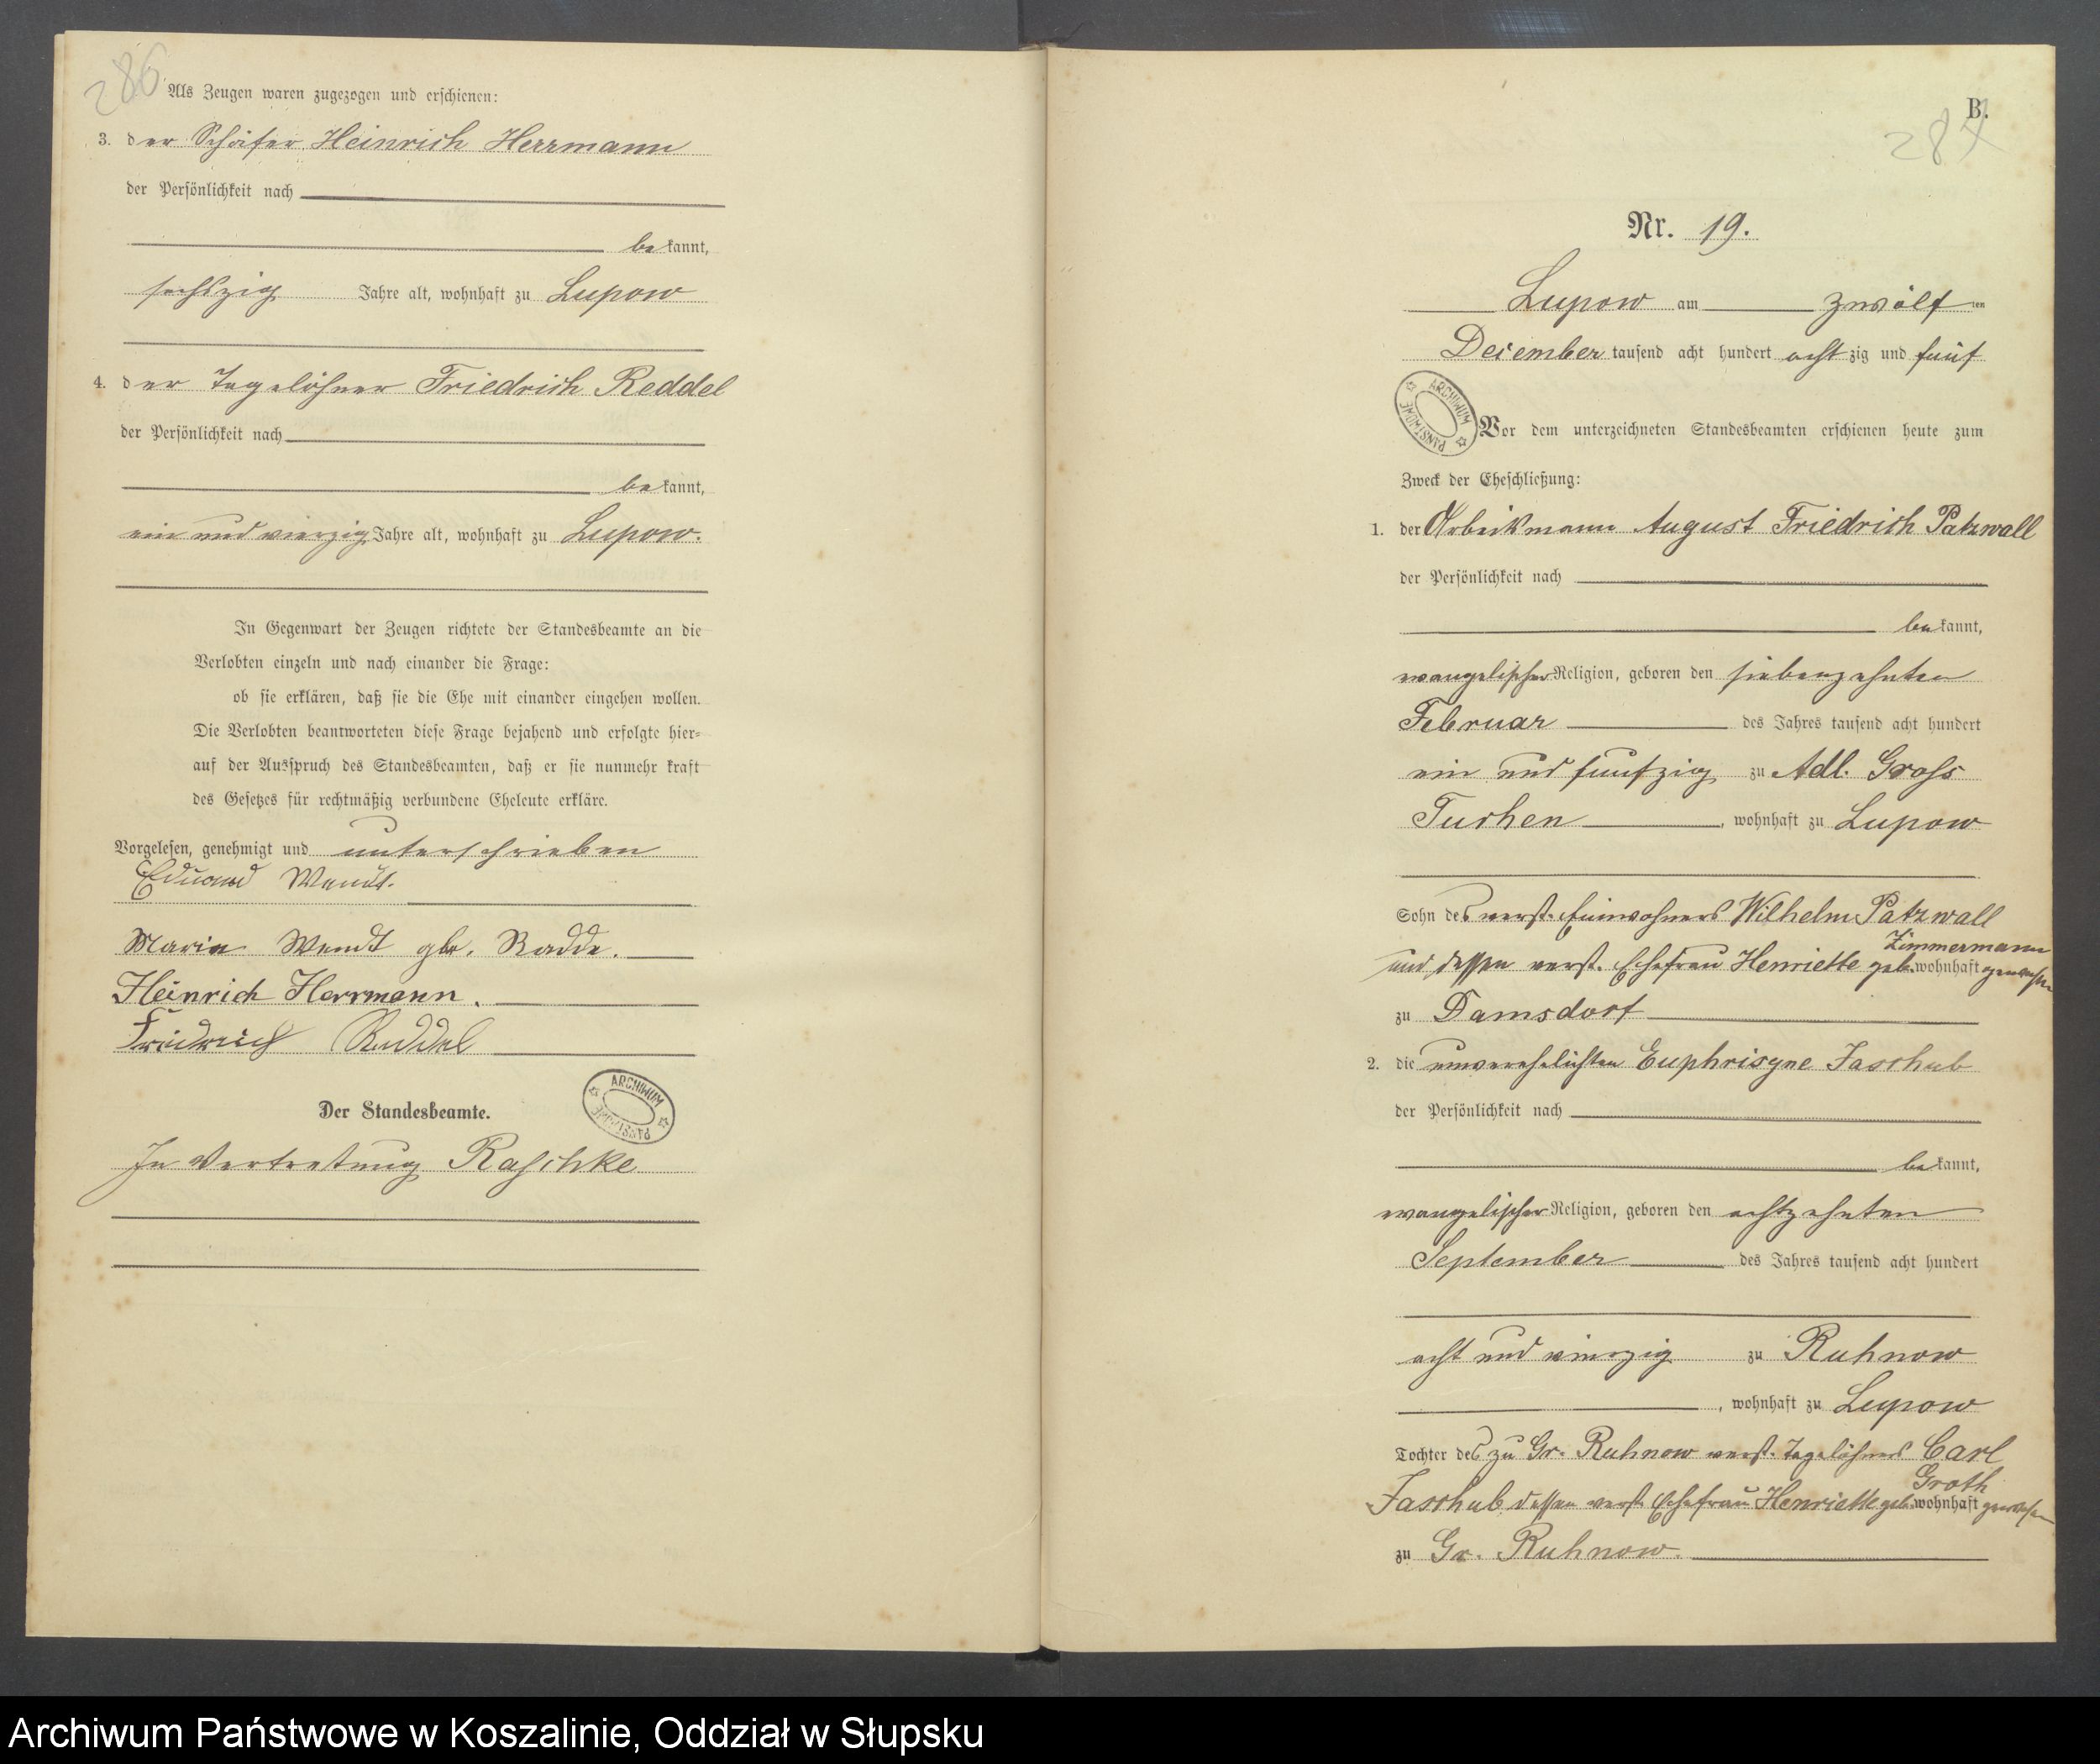 286
Als Zeugen waren zugezogen und erschienen:
3. der Schäfer Heinrich Herrmann
der Persönlichkeit nach
bekannt,
sechszig Jahre alt, wohnhaft zu Lupow
4. der Tagelöhner Friedrich Reddel
der Persönlichkeit nach
bekannt,
ein und vierzig Jahre alt, wohnhaft zu Lupow.
In Gegenwart der Zeugen richtete der Standesbeamte an die
Verlobten einzeln und nach einander die Frage:
ob sie erklären, daß sie die Ehe mit einander eingehen wollen.
Die Verlobten beantworteten diese Frage bejahend und erfolgte hier-
auf der Ausspruch des Standesbeamten, daß er sie nunmehr kraft
des Gesetzes für rechtmäßig verbundene Eheleute erkläre.
Vorgelesen, genehmigt und unterschrieben
Eduard Wendt.
Maria Wendt geb. Radde.
Heinrich Herrmann.
Friedrich Reddel
Der Standesbeamte.
ARCHIWUM PAŃSTWOWE
In Vertretung Raschke
B.
287
Nr. 19.
Lupow am zwölften
December tausend acht hundert achtzig und fünf
ARCHIWUM PAŃSTWOWE
Vor dem unterzeichneten Standesbeamten erschienen heute zum
Zweck der Eheschließung:
1. der Arbeitsmann August Friedrich Patzwall
der Persönlichkeit nach
bekannt,
evangelischer Religion, geboren den siebenzehnten
Februar des Jahres tausend acht hundert
ein und funfzig zu Adl. Gross
Tuchen, wohnhaft zu Lupow
Sohn des verst. Einwohners Wilhelm Patzwall
Zimmermann
und dessen verst. Ehefrau Henriette geb. wohnhaft gewesen
zu Damsdorf
2. die unverehelichten Euphrisyne Jaschub
der Persönlichkeit nach
bekannt,
evangelischer Religion, geboren den achtzehnten
September des Jahres tausend acht hundert
acht und vierzig zu Ruhnow
, wohnhaft zu Lupow
Tochter des zu Gr. Ruhnow verst. Tagelöhners Carl
Groth
Jaschub dessen verst. Ehefrau Henriette geb. wohnhaft gewesen
zu Gr. Ruhnow.
Archiwum Państwowe w Koszalinie, Oddział w Słupsku